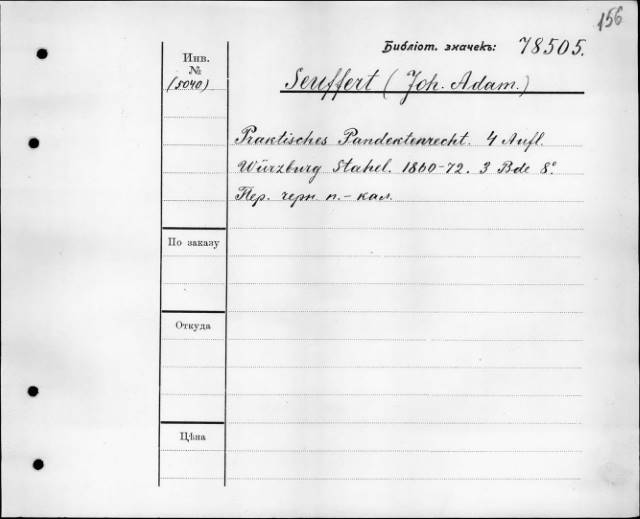 156
Библіот. значекъ: 78505.
Инв.
№
(5040)
Seuffert (Joh. Adam.)
Praktisches Pandektenrecht. 4 Aufl.
Würzburg Stahel. 1860-72. 3 Bde 8º
Пер. черн. п.-кал.
По заказу
Откуда
Цѣна